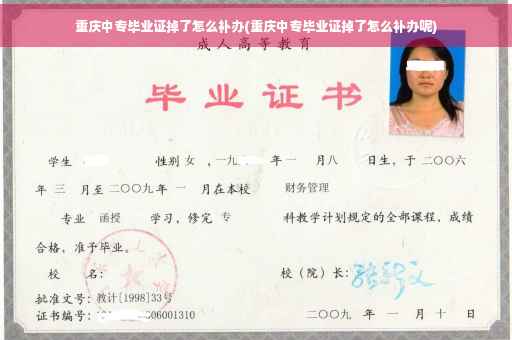 重庆中专毕业证掉了怎么补办(重庆中专毕业证掉了怎么补办呢)
成人高等教育
毕业证书
学生 性别 女 ,一九 年 一 月八 日生，于 二〇〇六
年 三 月至 二〇〇九 年 一 月在本校 财务管理
专业 函授 学习，修完 专 科教学计划规定的全部课程，成绩
合格，准予毕业。
校 名： 校（院）长：
批准文号：教计[1998]33号
证书编号： 006001310 二〇〇九 年 一 月 十 日